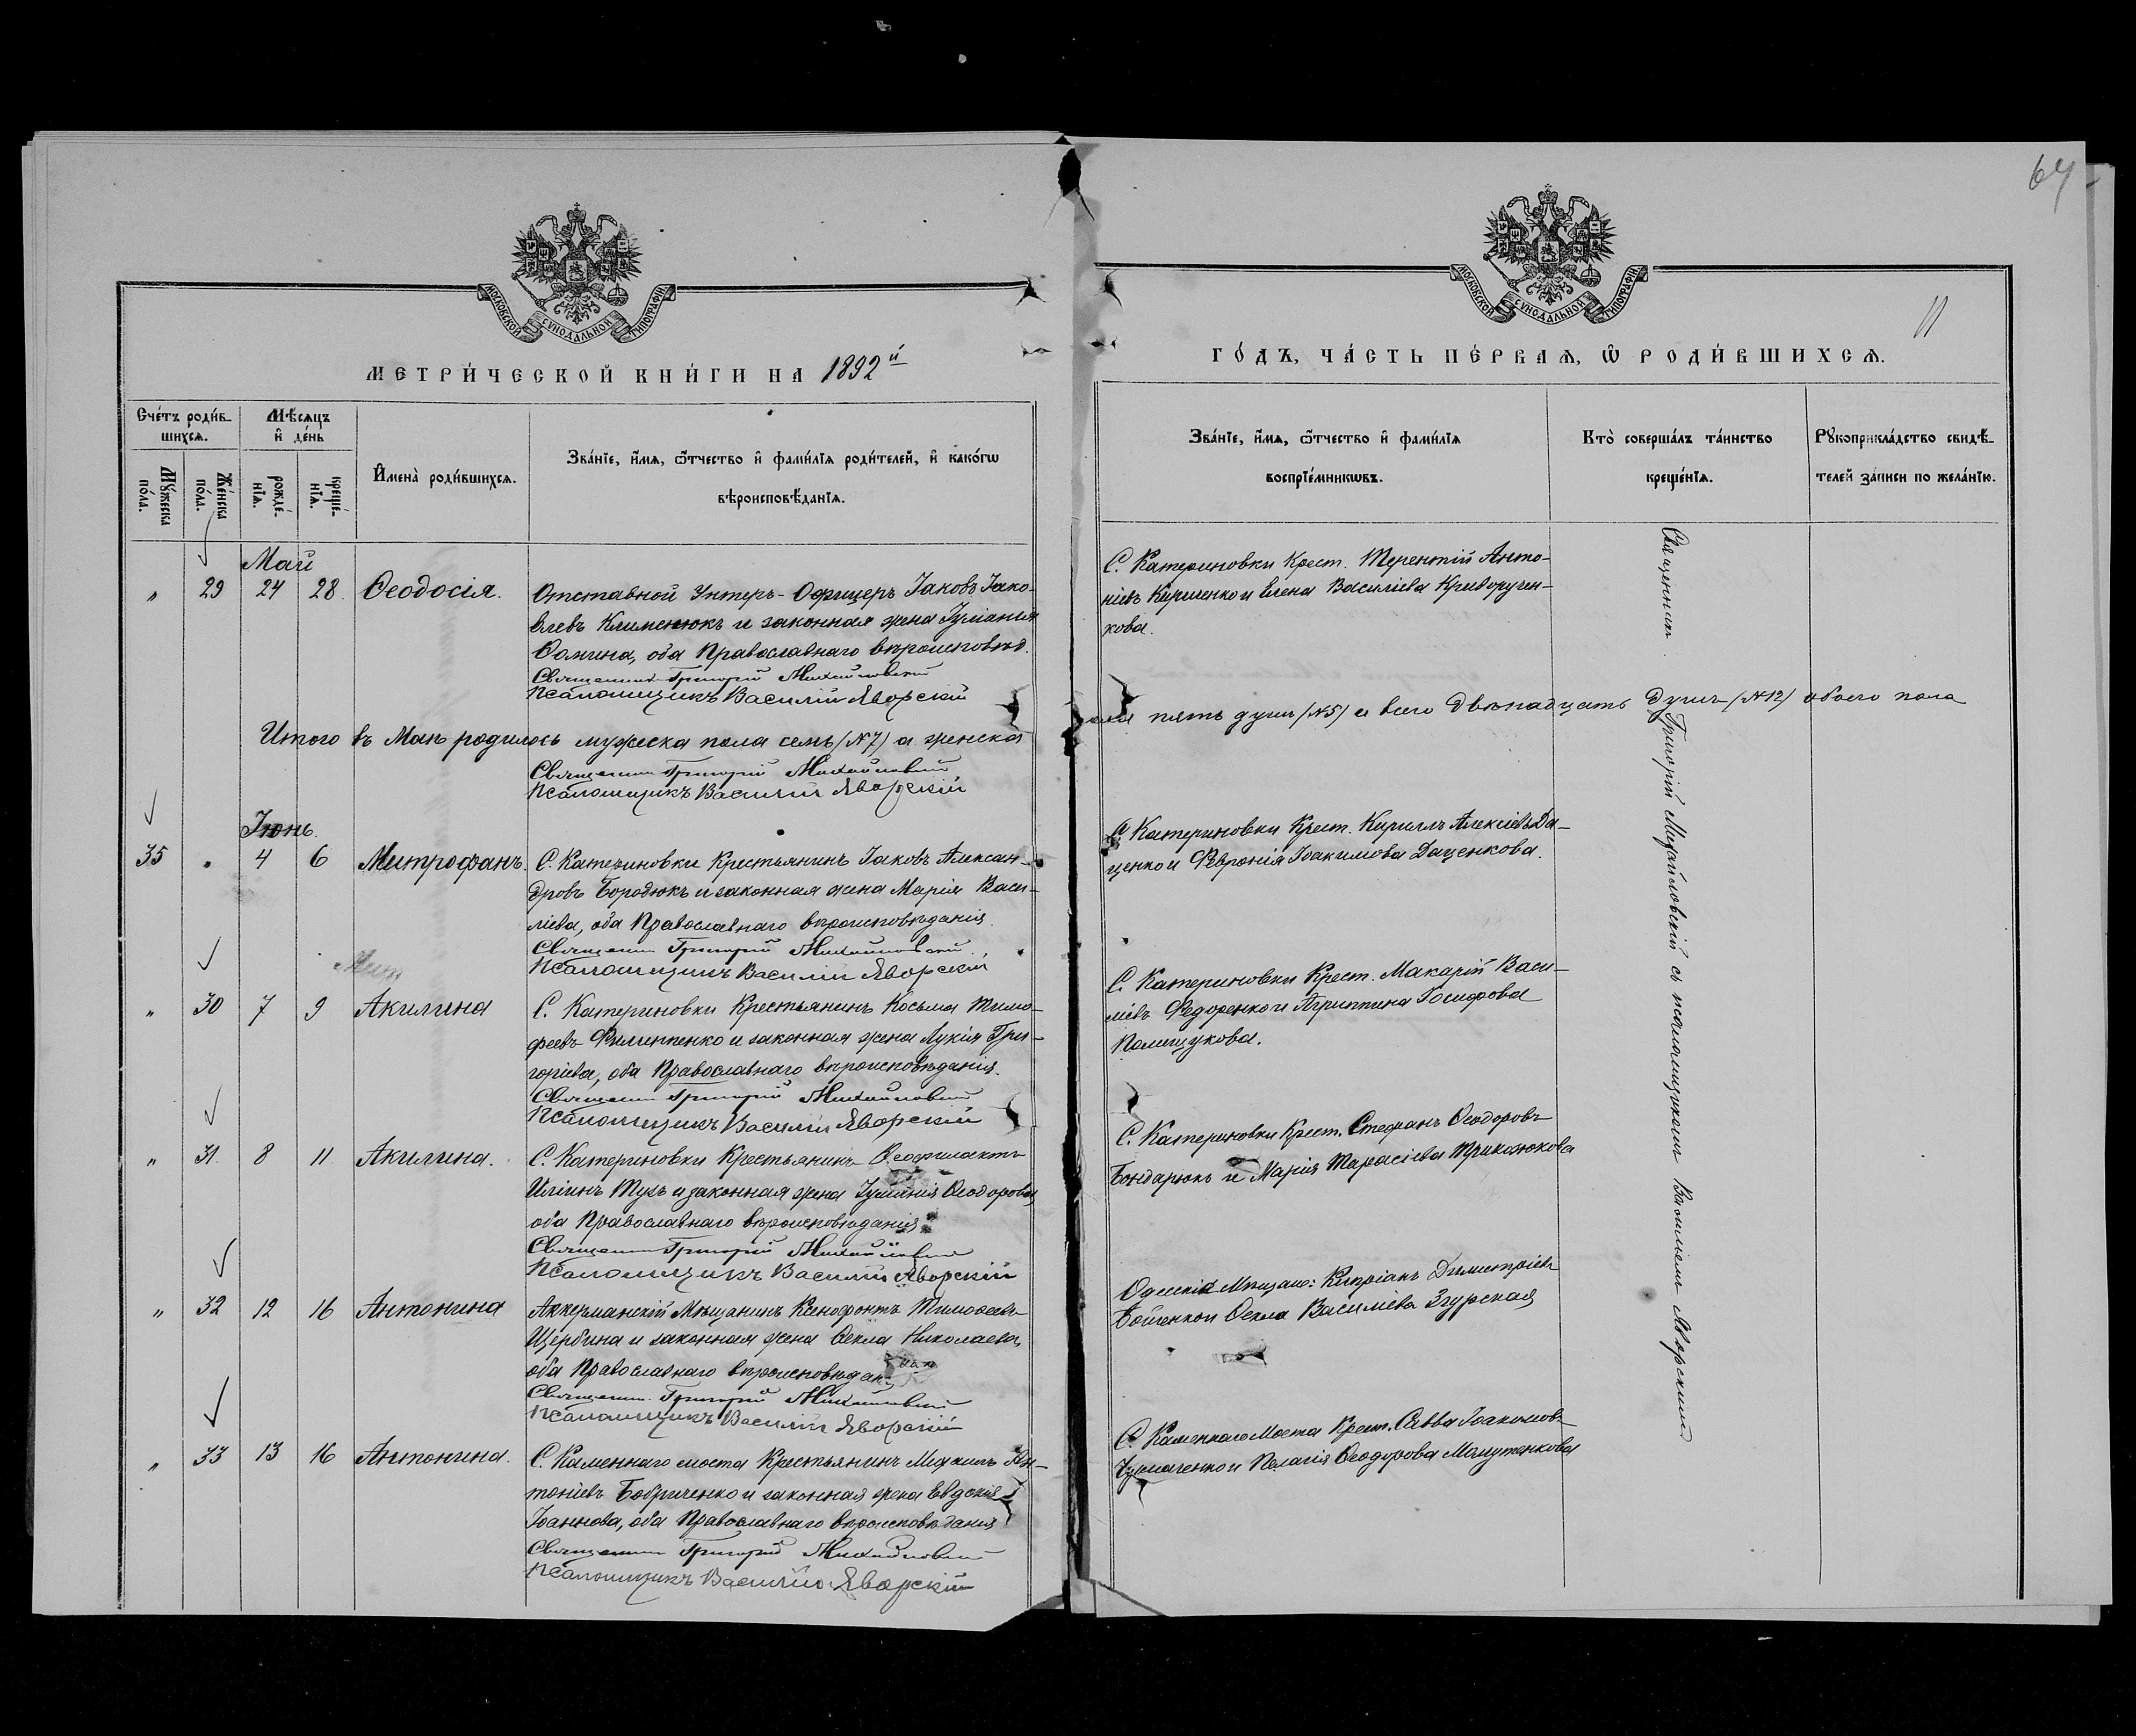 64
МОСКОВСКОЙ СѴНОДАЛЬНОЙ ТИПОГРАФІИ
МОСКОВСКОЙ СѴНОДАЛЬНОЙ ТИПОГРАФІИ
11
МЕТРИ́ЧЕСКОЙ КНИ́ГИ НА 1892й
ГО́ДЪ, ЧА́СТЬ ПЕ́РВАѦ, Ѡ РОДИ́ВШИХСѦ.
Счетъ роди́в-
шихсѧ.
Мѣсѧцъ
и де́нь
Мꙋжеска по́ла.
Же́нска по́ла.
рожде́-
нїѧ.
креще́-
нїѧ.
И҆мена̀ роди́вшихсѧ.
Зва́нїе, и҆́мѧ, ѻ҆́тчество и҆ фами́лїѧ роди́телей, и҆ како́гѡ
вѣроисповѣ́данїѧ.
Зва́нїе, и҆́мѧ, ѻ҆́тчество и҆ фами́лїѧ
воспрїе́мникѡвъ.
Кто̀ соверша́лъ та́инство
креще́нїѧ.
Рꙋкоприкла́дство свидѣ́-
телей за́писи по жела́нїю.
Май
" 29 24 28 Ѳеодосія.
Отставной Унтеръ-Офицеръ Іаковъ Іако-
влевъ Клименюкъ и законная жена Іуліанія
Ѳомина, оба Православнаго вѣроисповѣд.
Священникъ Григорій Михайловскій
Псаломщикъ Василій Яворскій
С. Катериновки Крест. Терентій Анто-
ніевъ Кириченко и Елена Василіева Криворучен-
кова.
Итого въ Маѣ родилось мужеска пола семь (№7) а женска
пола пять душъ (№5) а всего двѣнадцать душъ (№12) обоего пола
Священникъ Григорій Михайловскій
Псаломщикъ Василій Яворскій
Іюнь.
35 " 4 6 Митрофанъ.
С. Катериновки Крестьянинъ Іаковъ Алексан-
дровъ Бородюкъ и законная жена Марія Васи-
ліева, оба Православнаго вѣроисповѣданія
Священникъ Григорій Михайловскій
Псаломщикъ Василій Яворскій
С. Катериновки Крест. Кириллъ Алексіевъ Да-
ценко и Февронія Іоакимова Даценкова.
Мит
" 30 7 9 Акилина
С. Катериновки Крестьянинъ Косьма Тимо-
феевъ Филипенко и законная жена Лукія Гри-
горіева, оба Православнаго вѣроисповѣданія.
Священникъ Григорій Михайловскій
Псаломщикъ Василій Яворскій
С. Катериновки Крест. Макарій Васи-
ліевъ Федоренко и Агриппина Іосифова
Полищукова.
" 31 8 11 Акилина.
С. Катериновки Крестьянинъ Ѳеофилактъ
Иліинъ Тузъ и законная жена Іуліанія Ѳеодорова,
оба Православнаго вѣроисповѣданія
Священникъ Григорій Михайловскій
Псаломщикъ Василій Яворскій
С. Катериновки Крест. Стефанъ Ѳеодоровъ
Бондарюкъ и Марія Тарасіева
" 32 12 16 Антонина
Аккерманскій Мѣщанинъ Ксенофонтъ Тимоѳеевъ
Щербина и законная жена Ѳекла Николаева,
оба Православнаго вѣроисповѣданія
Священникъ Григорій Михайловскій
Псаломщикъ Василій Яворскій
Одесскій Мѣщан: Кипріанъ Димитріевъ
Бойченко и Ѳекла Василіева Згурская
" 33 13 16 Антонина.
С. Каменнаго моста Крестьянинъ Михаилъ Ан-
тоніевъ Бобриченко и законная жена Евдокія
Іоаннова, оба Православнаго вѣроисповѣданія
Священникъ Григорій Михайловскій
Псаломщикъ Василій Яворскій
С. Каменнаго Моста Крест. Савва Іоакимовъ
и Пелагія Ѳеодорова
Священникъ Григорій Михайловскій съ псаломщикомъ Василіемъ Яворскимъ